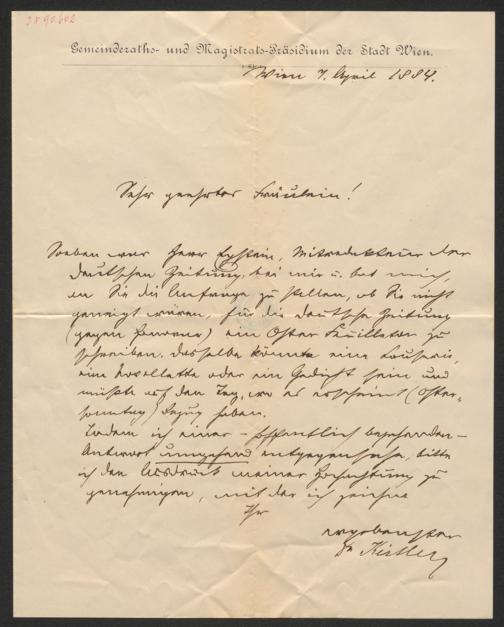 IN 90.602
Gemeinderaths- und Magistrats-Präsidium der Stadt Wien.
Wien 7. April 1884.
Sehr geehrtes Fräulein!
Soeben war Herr Epstein, Mitredakteur der
deutschen Zeitung, bei mir u. bat mich,
an Sie die Anfrage zu stellen, ob Sie nicht
geneigt wären, für die deutsche Zeitung
(gegen Honorar) ein Oster Feuilleton zu
schreiben. Dasselbe könnte eine Causerie,
eine Novellette oder ein Gedicht sein und
müßte auf den Tag, wo es erscheint (Oster-
sonntag) Bezug haben.
Indem ich einer – hoffentlich bejahenden –
Antwort umgehend entgegensehe, bitte
ich den Ausdruck meiner Hochachtung zu
genehmigen, mit der ich zeichne
Ihr
ergebenster
Dr